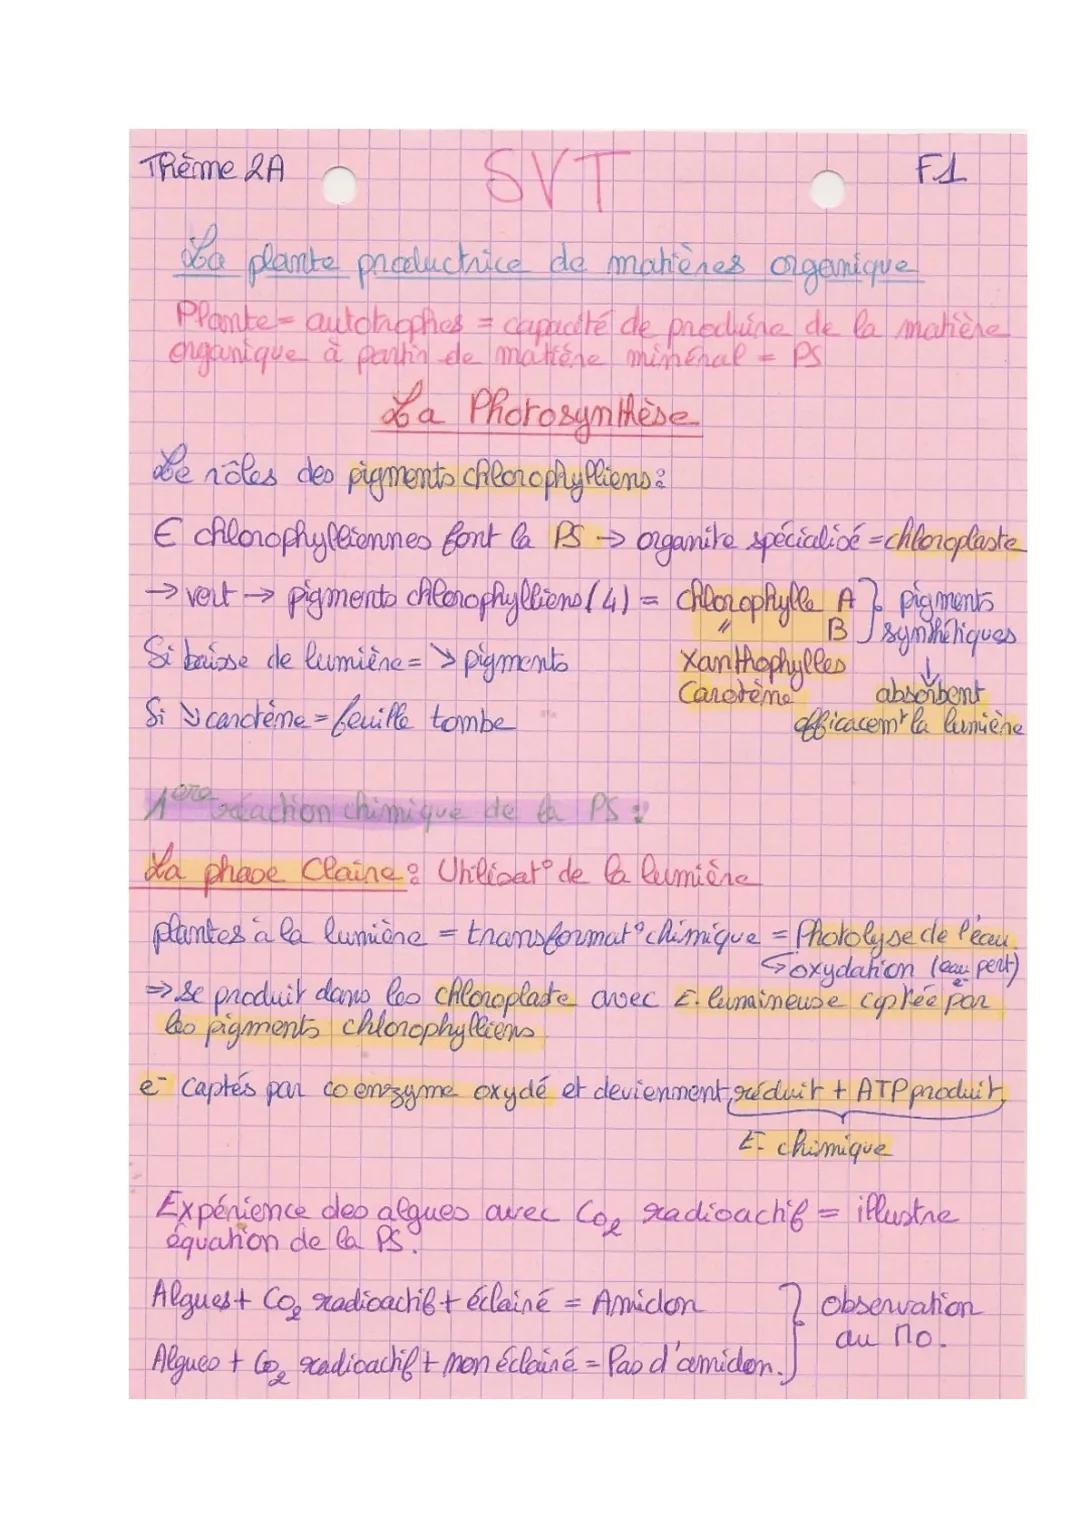 Thème 2A SVT F1
La plante productrice de matières organique
Plante = autotrophes = capacité de produire de la matière
organique à partir de matière minéral = PS
La Photosynthèse
Le rôles des pigments chlorophylliens :
€ chlorophylliennes font la PS → organite spécialisé = chloroplaste
→ vert → pigments chlorophylliens (4) = chlorophylle A } pigments
" B synthétiques
Si baisse de lumière = ↘ pigments Xanthophylles ↓
Carotème absorbent
Si ↘ carotème = feuille tombe efficacemt la lumière
1ère réaction chimique de la PS :
La phase Claire : Utilisat° de la lumière
plantes à la lumière = transformat° chimique = Photolyse de l'eau
↳ oxydation (eau pert)
⇒ se produit dans les chloroplaste avec E. lumineuse captée par
les pigments chlorophylliens
e⁻ captés par coenzyme oxydé et deviennent réduit + ATP produit
E. chimique
Expérience des algues avec CO₂ radioactif = illustre
équation de la PS.
Algues + CO₂ radioactif + éclairé = Amidon } observation
au MO.
Algues + CO₂ radioactif + non éclairé = Pas d'amidon.